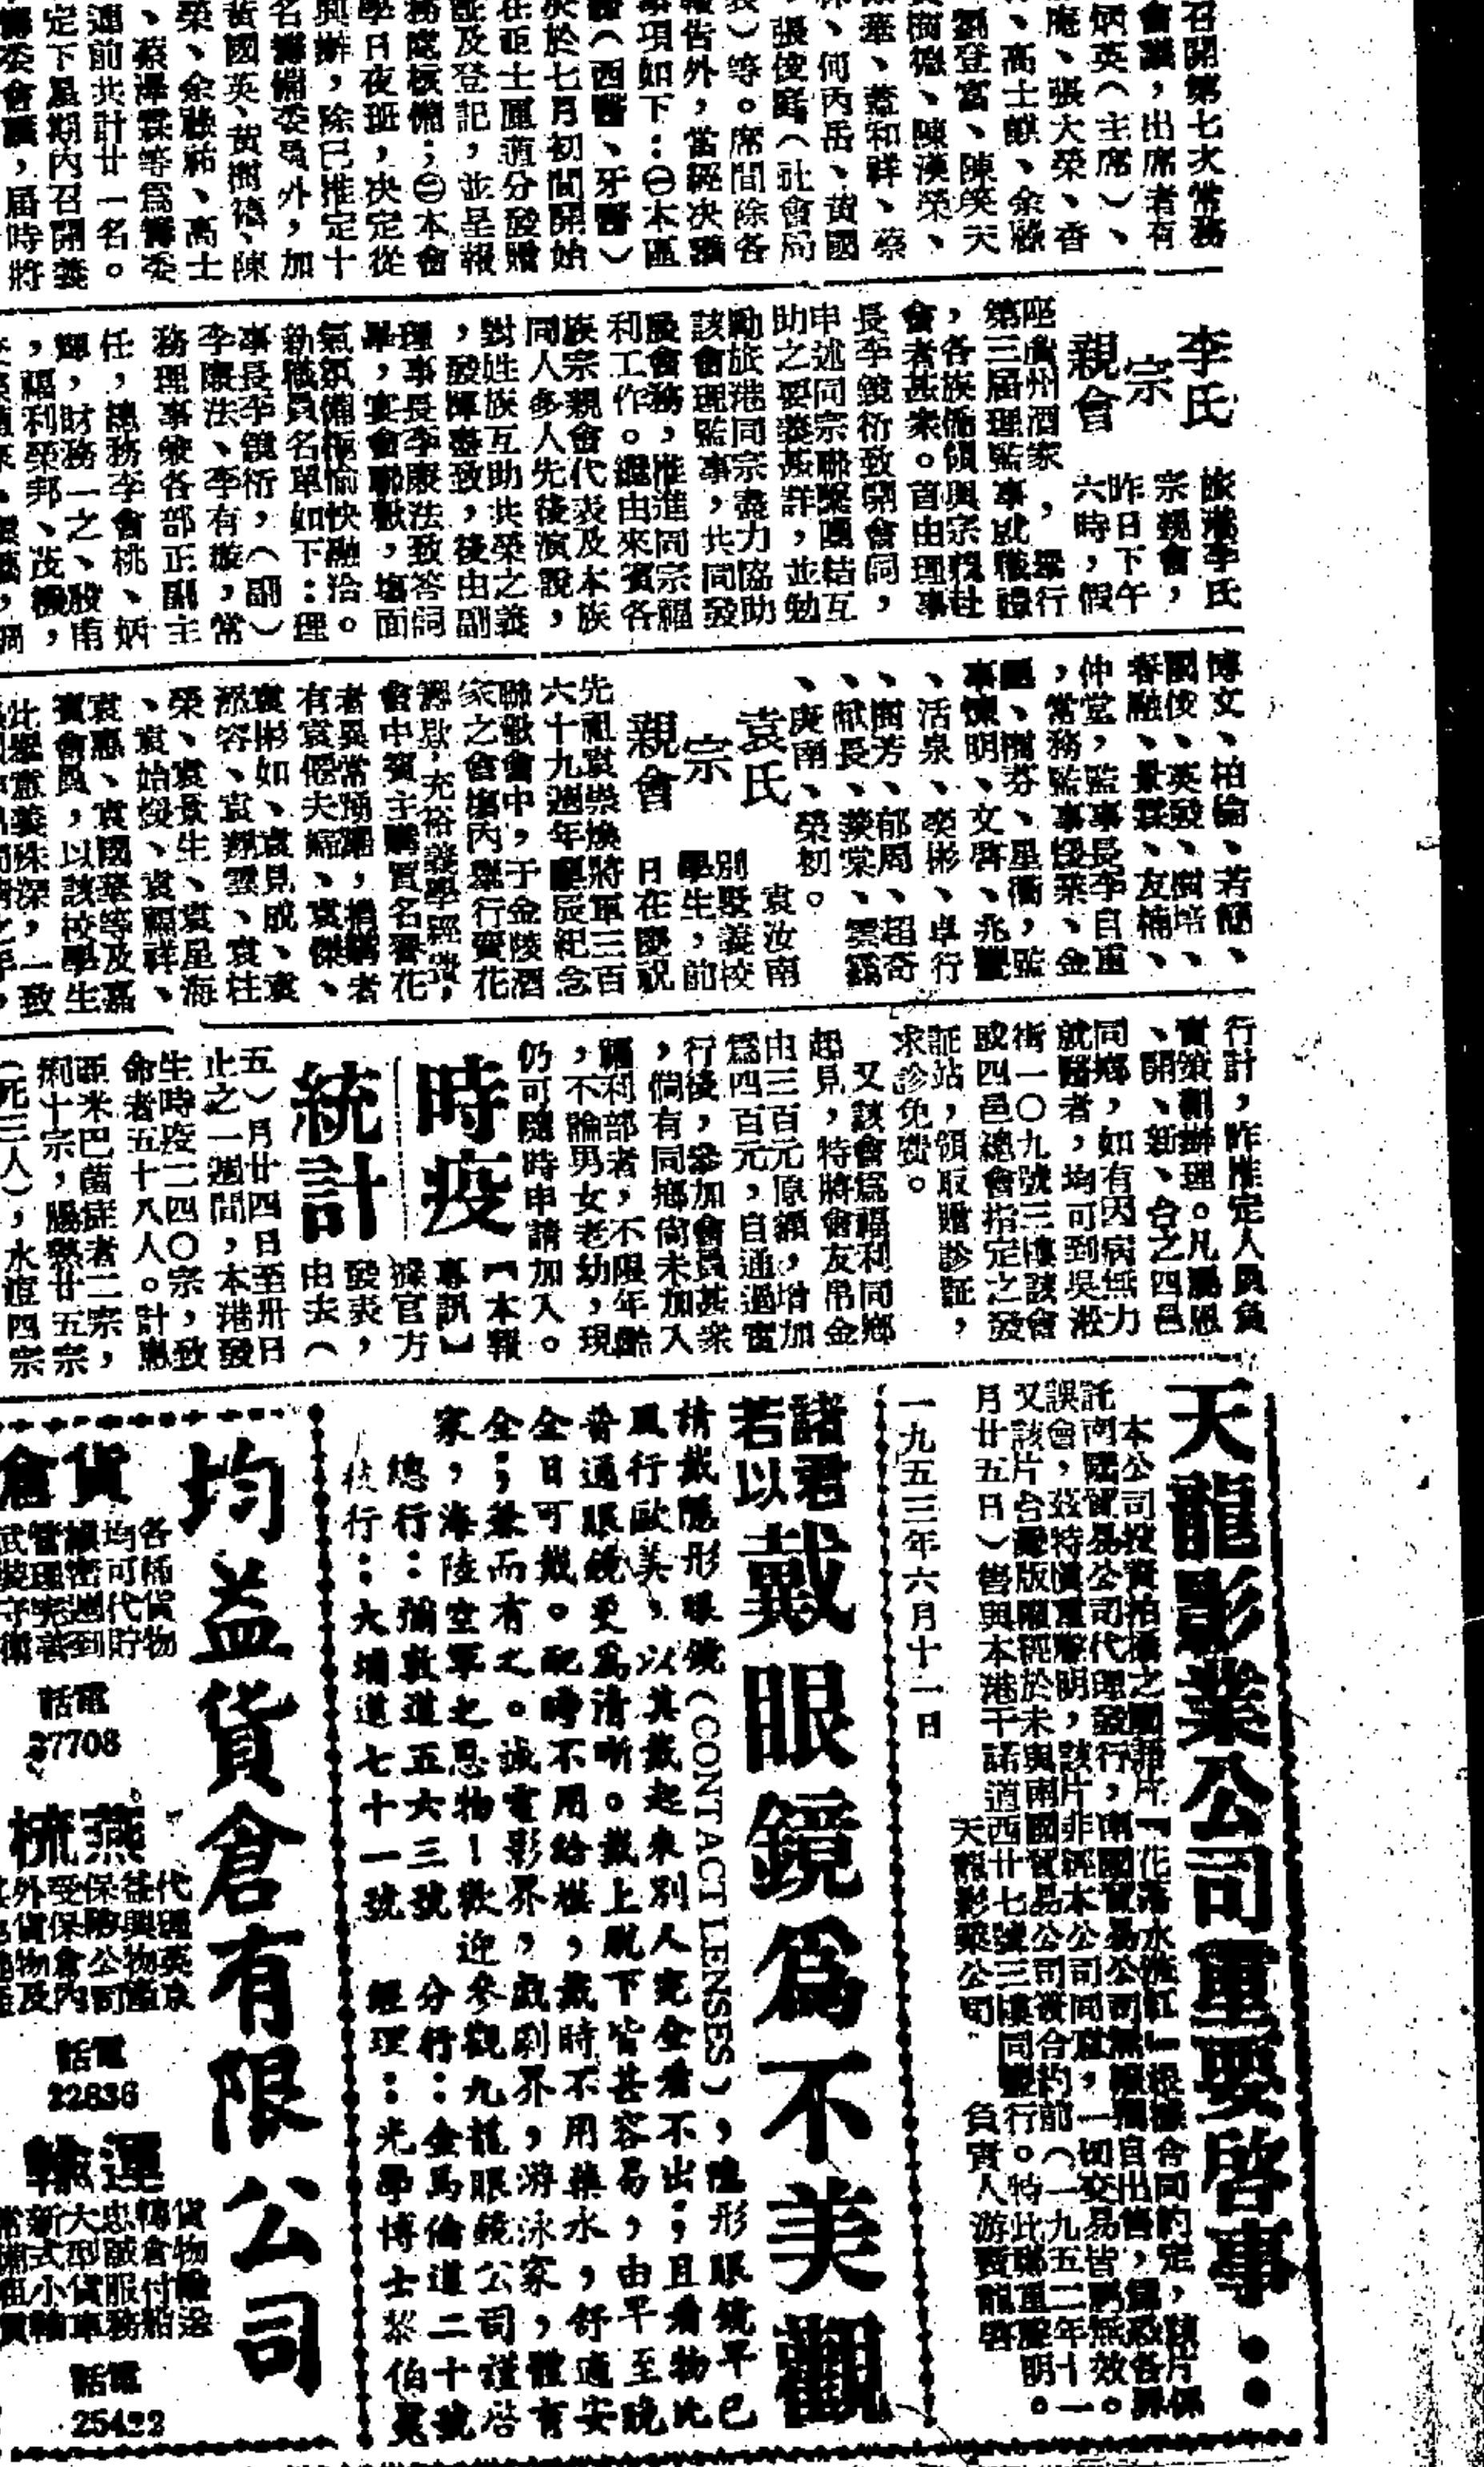 召開第七次常務
會議，出席者有
炳英（主席）、
庵、張大榮、香
、高士麒、余祿
劉登富、陳笑天
樹德、陳漢榮、
華、蕭和祥、蔡
、何丙岳、黃國
張俊庭（社會局
）等。席間除各
報告外，當經決議
項如下：㊀本區
醫（西醫、牙醫）
於七月初間開始
在亞士厘道分發贈
証及登記，並呈報
務處核備；㊁本會
學日夜班，決定從
興辦，除已推定十
名籌備委員外，加
黃國英、黃樹德、陳
榮、余祿祐、高士
、蔡澤霖等爲籌委
連前共計廿一名。
定下星期內召開義
籌委會議，屆時將
李氏
宗
親會
旅港李氏
宗親會，
昨日下午
六時，假
座廣州酒家，舉行
第三屆理監事就職禮
，各族僑領與宗親赴
會者甚衆。首由理事
長李鏡衍致開會詞，
申述同宗聯繫團結互
助之要義甚詳，並勉
勵旅港同宗盡力協助
該會理監事，共同發
展會務，推進同宗福
利工作。繼由來賓各
族宗親會代表及本族
同人多人先後演說，
對姓族互助共榮之義
，發揮盡致，後由副
理事長李康法致答詞
畢，宴會聯歡，塲面
氣氛備極愉快融洽。
新職員名單如下：理
事長李鏡衍，（副）
李康法、李有璇，常
務理事兼各部正副主
任，總務李會桃、炳
，財務一之、殷甫
，福利榮邦、茂機，
博文、柏倫、若簡、
國俊、英發、樹培、
春融、景霖、友楠、
仲堂，監事長李自重
，常務監事錫榮、金
、樹芬、星衢，監
事煉明、文啓、兆豐
、活泉、奕彬、卓行
、樹芳、郁周、超奇
、猷長、業棠、雲
、庚南、榮初。
袁氏
宗
親會
袁汝南
別墅義校
學生，前
日在慶祝
先祖袁崇煥將軍三百
六十九週年壽辰紀念
聯歡會中，于金陵酒
家之會塲內舉行賣花
籌欵，充裕義學經費，
會中賓主購買名譽花
者異常踴躍，捐購者
有袁偓夫婦、袁傑、
袁彬如、袁見成、袁
添容、袁翔雲、袁柱
榮、袁景生、袁星海
、袁始掞、袁福祥、
袁惠、袁國華等及嘉
賓會員，以該校學生
此舉意義殊深，一致
行計，昨推定人員負
責策劃辦理。凡屬恩
、開、新、台之四邑
同鄉，如有因病無力
就醫者，均可到吳淞
街一〇九號三樓該會
或四邑總會指定之發
証站，領取贈診証，
求診免費。
又該會爲福利同鄉
起見，特將會友帛金
由三百元原額，增加
爲四百元，自通過實
行後，參加會員甚衆
，倘有同鄉尚未加入
福利部者，不限年齡
，不論男女老幼，現
仍可隨時申請加入。
時疫
統計
【本報
專訊】
據官方
發表，
由去（
五）月廿四日至卅日
止之一週間，本港發
生時疫二四〇宗，致
命者五十八人。計患
亞米巴菌症者二宗，
痢十宗，腸熱廿五宗
（死三人），水痘四宗
天龍影業公司重要啓事：
本公司投資拍攝之國語片『花落水流紅』根據合同約定，該片係
託南國貿易公司代理發行，南國貿易公司無權擅自出售，爲恐各界
誤會，茲特愼重聲明，該片非經本公司同意，一切交易皆屬無效。
又該片台灣版權經於未與南國貿易公司簽合約前（一九五二年十一
月廿五日）售與本港干諾道西廿七號三樓同豐行。特此鄭重聲明。
天龍影業公司　負責人游寶龍啓
一九五三年六月十一日
諸君
若以
戴眼鏡爲不美觀
請戴隱形眼鏡（CONTACT LENSES），隱形眼鏡早已
風行歐美，以其戴起來別人完全看不出；且看物比
普通眼鏡更爲清晰。戴上脫下皆甚容易，由早至晚
全日可戴。配時不用給模，戴時不用藥水，舒適安
全；兼而有之。誠電影界，戲劇界，游泳家，體育
家，海陸空軍之恩物！歡迎參觀九龍眼鏡公司謹啓
總行：彌敦道五六三號　分行：金馬倫道二十號
枝行：大埔道七十一號　經理：光學博士黎伯昊
均益貨倉有限公司
貨倉
各種貨物
均可代貯
嚴密週到
管理完善
武裝守衛
電話
37708
燕梳
代理英京
益興物產
保險公司
受保倉內
外貨物及
電話
22836
運輸
貨物輸送
轉倉付船
忠誠服務
大型貨車
新式小輪
電話
25422